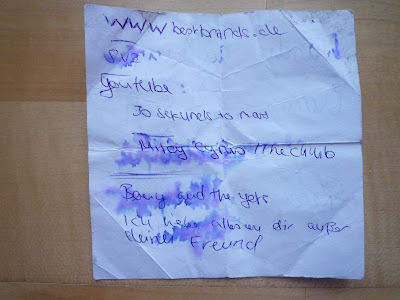 www.bestbrands.de
SVZ
Youtube:
30 sekunds to mars
Miley Cyrus / the climb
Benny and the yets
Ich liebe alles an dir außer
deinen Freund